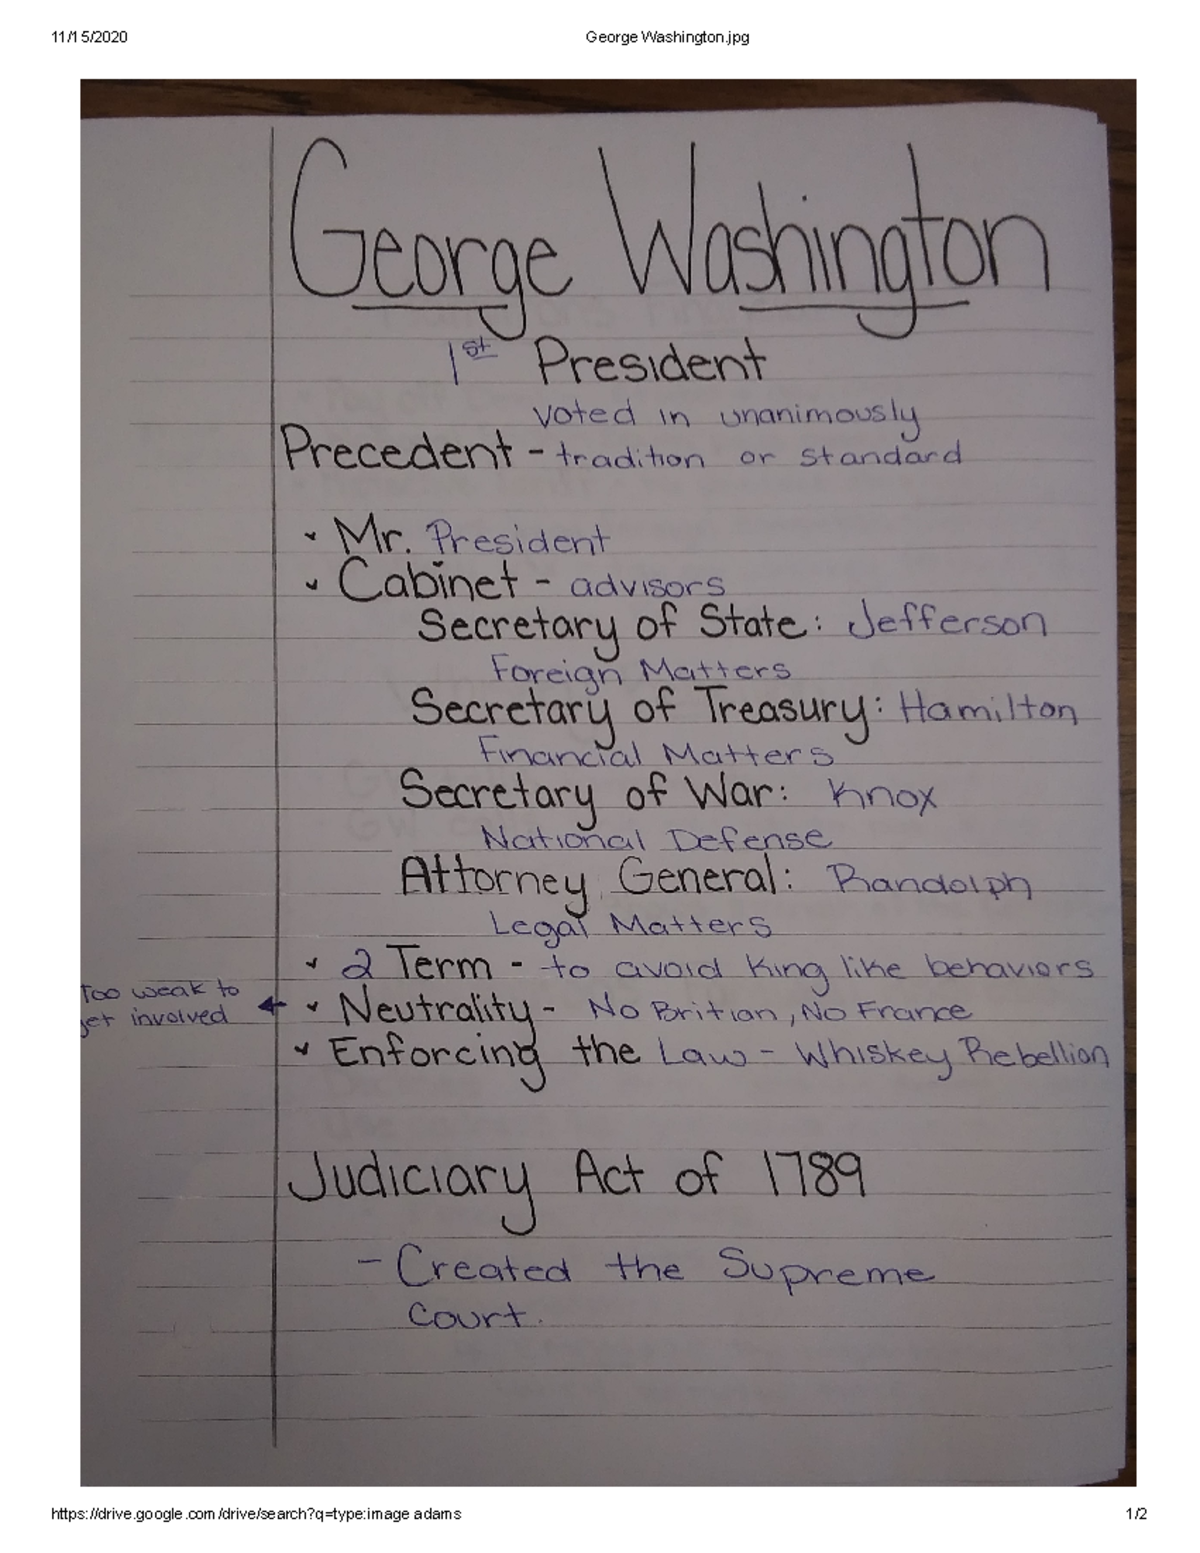 11/15/2020 George Washington.jpg
George Washington
1st President
voted in unanimously
Precedent - tradition or standard
• Mr. President
• Cabinet - advisors
Secretary of State: Jefferson
Foreign Matters
Secretary of Treasury: Hamilton
Financial Matters
Secretary of War: Knox
National Defense
Attorney General: Randolph
Legal Matters
• 2 Term - to avoid king like behaviors
• Neutrality - No Brition, No France
Too weak to
get involved
• Enforcing the Law - Whiskey Rebellion
Judiciary Act of 1789
- Created the Supreme
Court.
https://drive.google.com/drive/search?q=type:image adams 1/2